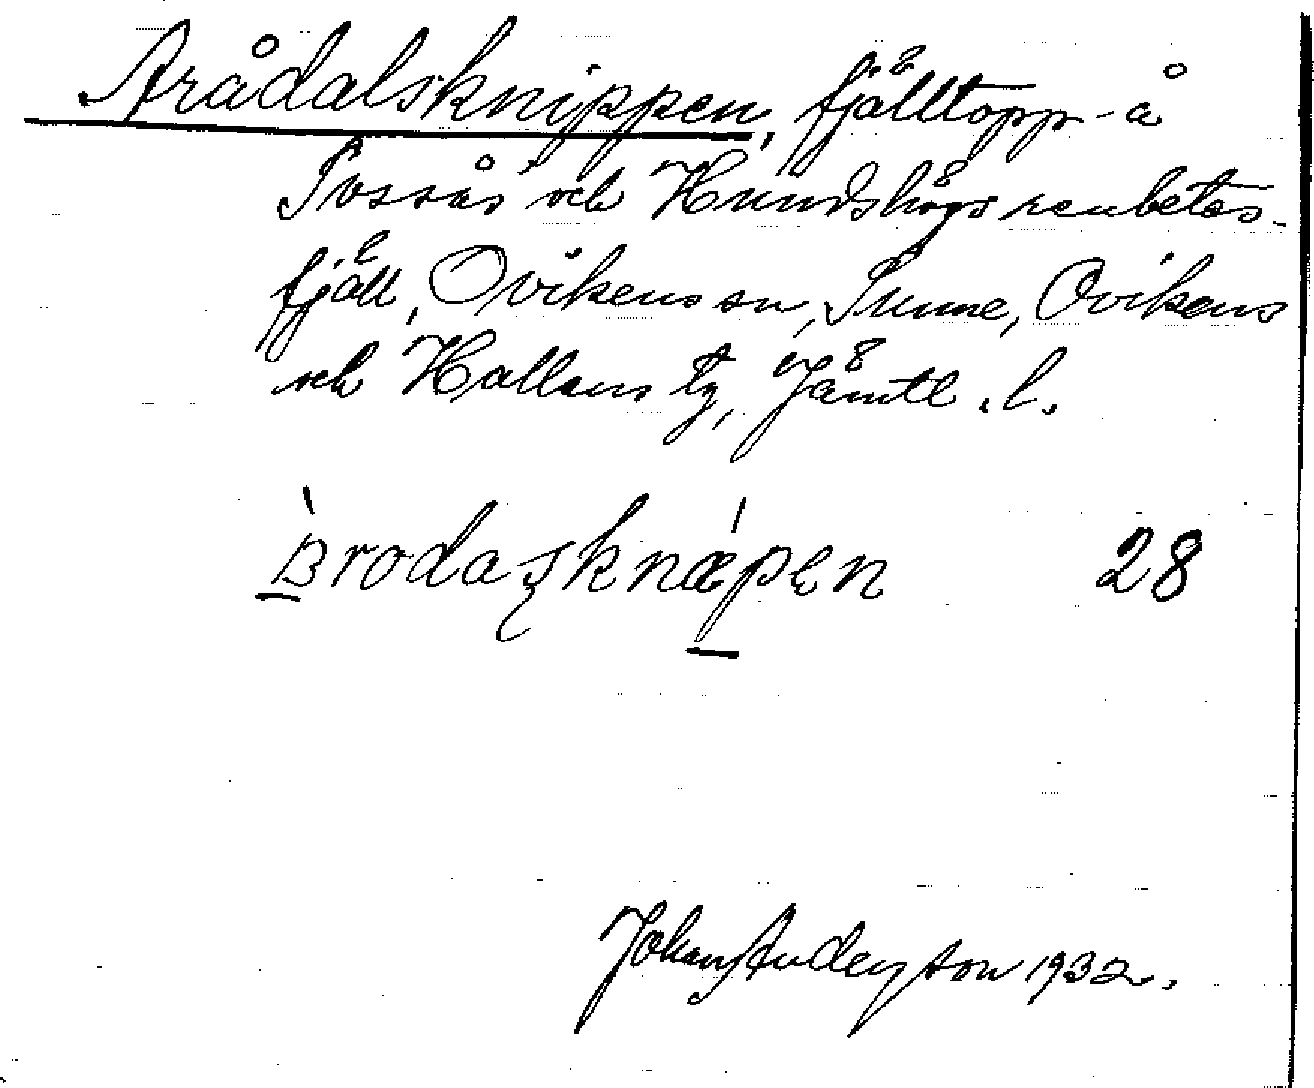 Arådalsknippen, fjälltopp å
Tossås och Hundshögs renbetes-
fjäll, Ovikens sn, Sunne, Ovikens
och Hallens tg, Jämtl. l.
28
Johan Anderson 1932.